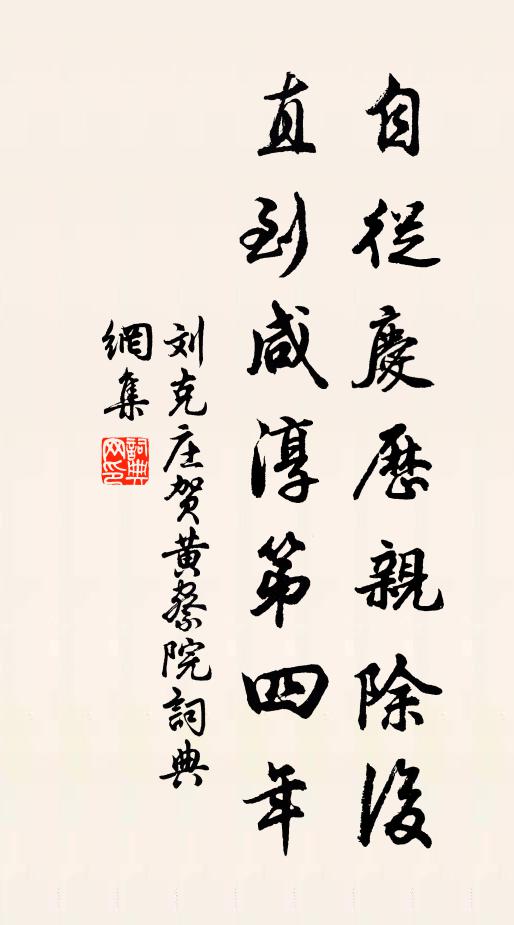 自從慶歷親除後
直到咸淳第四年
刘克庄贺黄察院詞典
網集
詞典網印